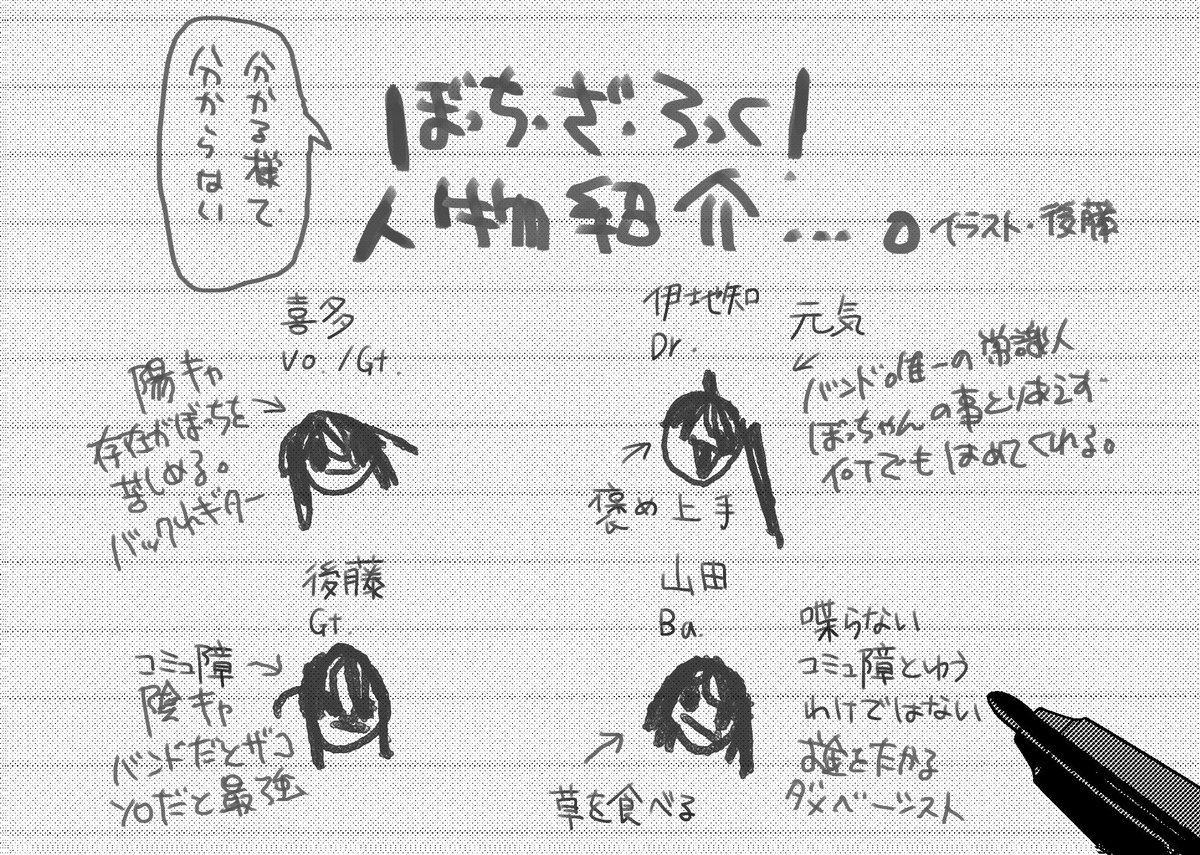 分かる様で
分からない
ぼっち・ざ・ろっく！
人物紹介…。
イラスト・後藤
喜多
Vo./Gt.
陽キャ
存在がぼっちを
苦しめる。
バックれギター
伊地知
Dr.
元気
バンド唯一の常識人
ぼっちゃんの事とりあえず
何でもほめてくれる。
褒め上手
後藤
Gt.
コミュ障
陰キャ
バンドだとザコ
ソロだと最強
山田
Ba.
喋らない
コミュ障とゆう
わけではない
お金をたかる
ダメベーシスト
草を食べる